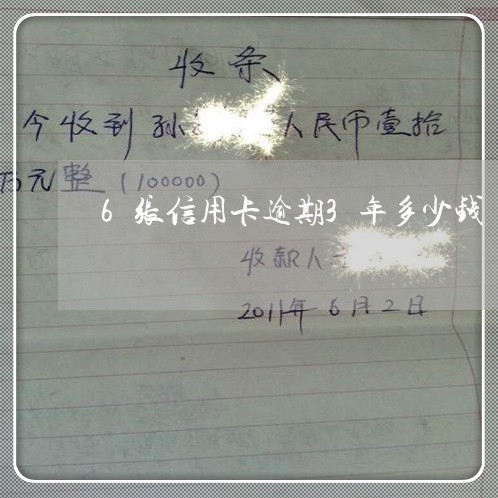 收条
今收到孙 人民币壹拾
万元整（100000）
6张信用卡逾期3年多少钱
收款人
2011年6月2日